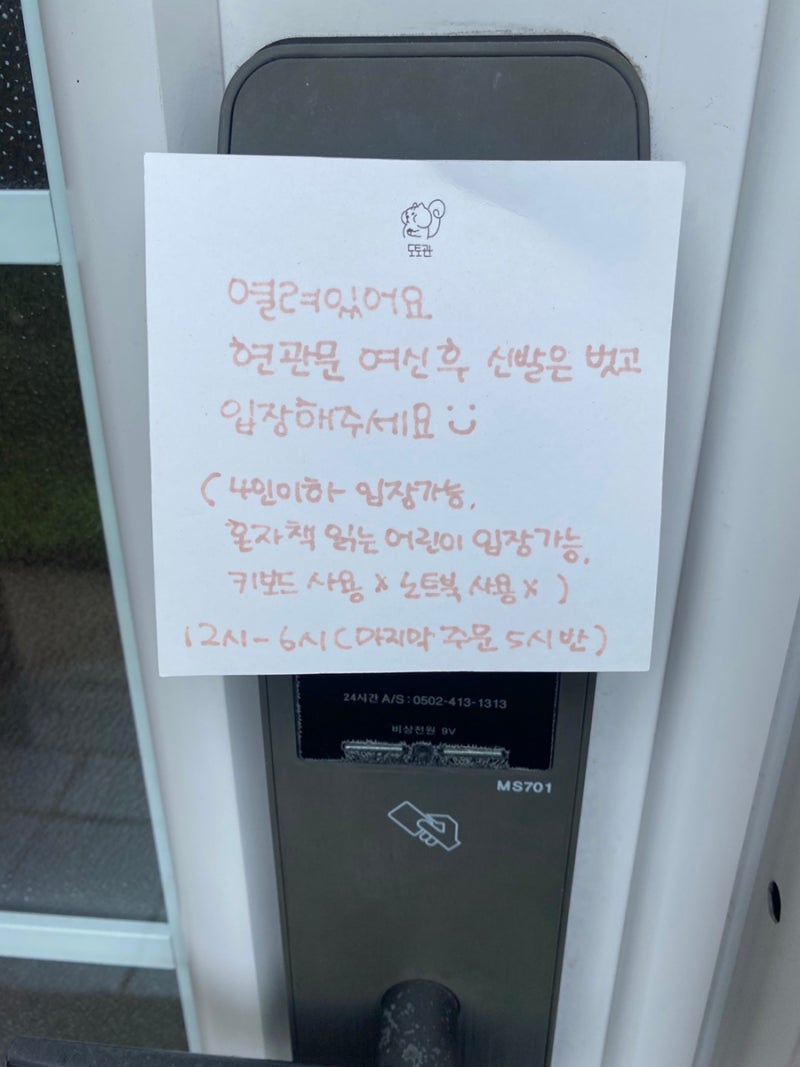 도토관
열려있어요
현관문 여신후 신발은 벗고
입장해주세요
( 4인이하 입장가능,
혼자책 읽는 어린이 입장가능,
키보드 사용 x 노트북 사용 x )
12시-6시(마지막 주문 5시반)
24시간 A/S : 0502-413-1313
비상전원 9V
MS701